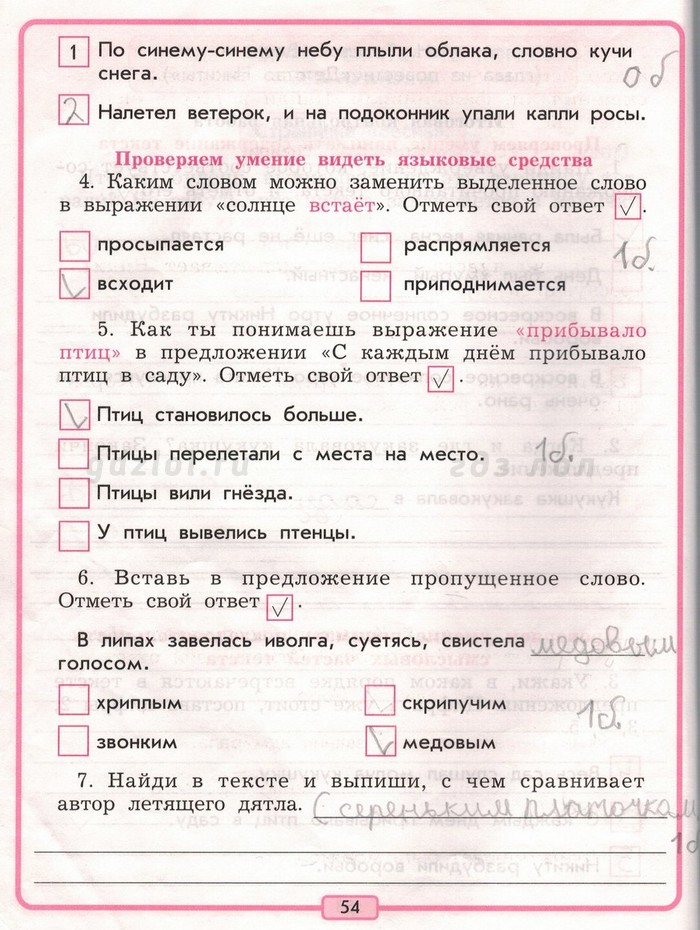 1 По синему-синему небу плыли облака, словно кучи
снега.
0 б
2 Налетел ветерок, и на подоконник упали капли росы.
Проверяем умение видеть языковые средства
4. Каким словом можно заменить выделенное слово
в выражении «солнце встаёт». Отметь свой ответ ✓.
просыпается
распрямляется
1б.
всходит
приподнимается
5. Как ты понимаешь выражение «прибывало
птиц» в предложении «С каждым днём прибывало
птиц в саду». Отметь свой ответ ✓.
Птиц становилось больше.
Птицы перелетали с места на место.
1б.
gdzlol.ru
Птицы вили гнёзда.
У птиц вывелись птенцы.
6. Вставь в предложение пропущенное слово.
Отметь свой ответ ✓.
В липах завелась иволга, суетясь, свистела медовым
голосом.
хриплым
скрипучим
1б.
звонким
медовым
7. Найди в тексте и выпиши, с чем сравнивает
автор летящего дятла. С сереньким платочкам
1б
54